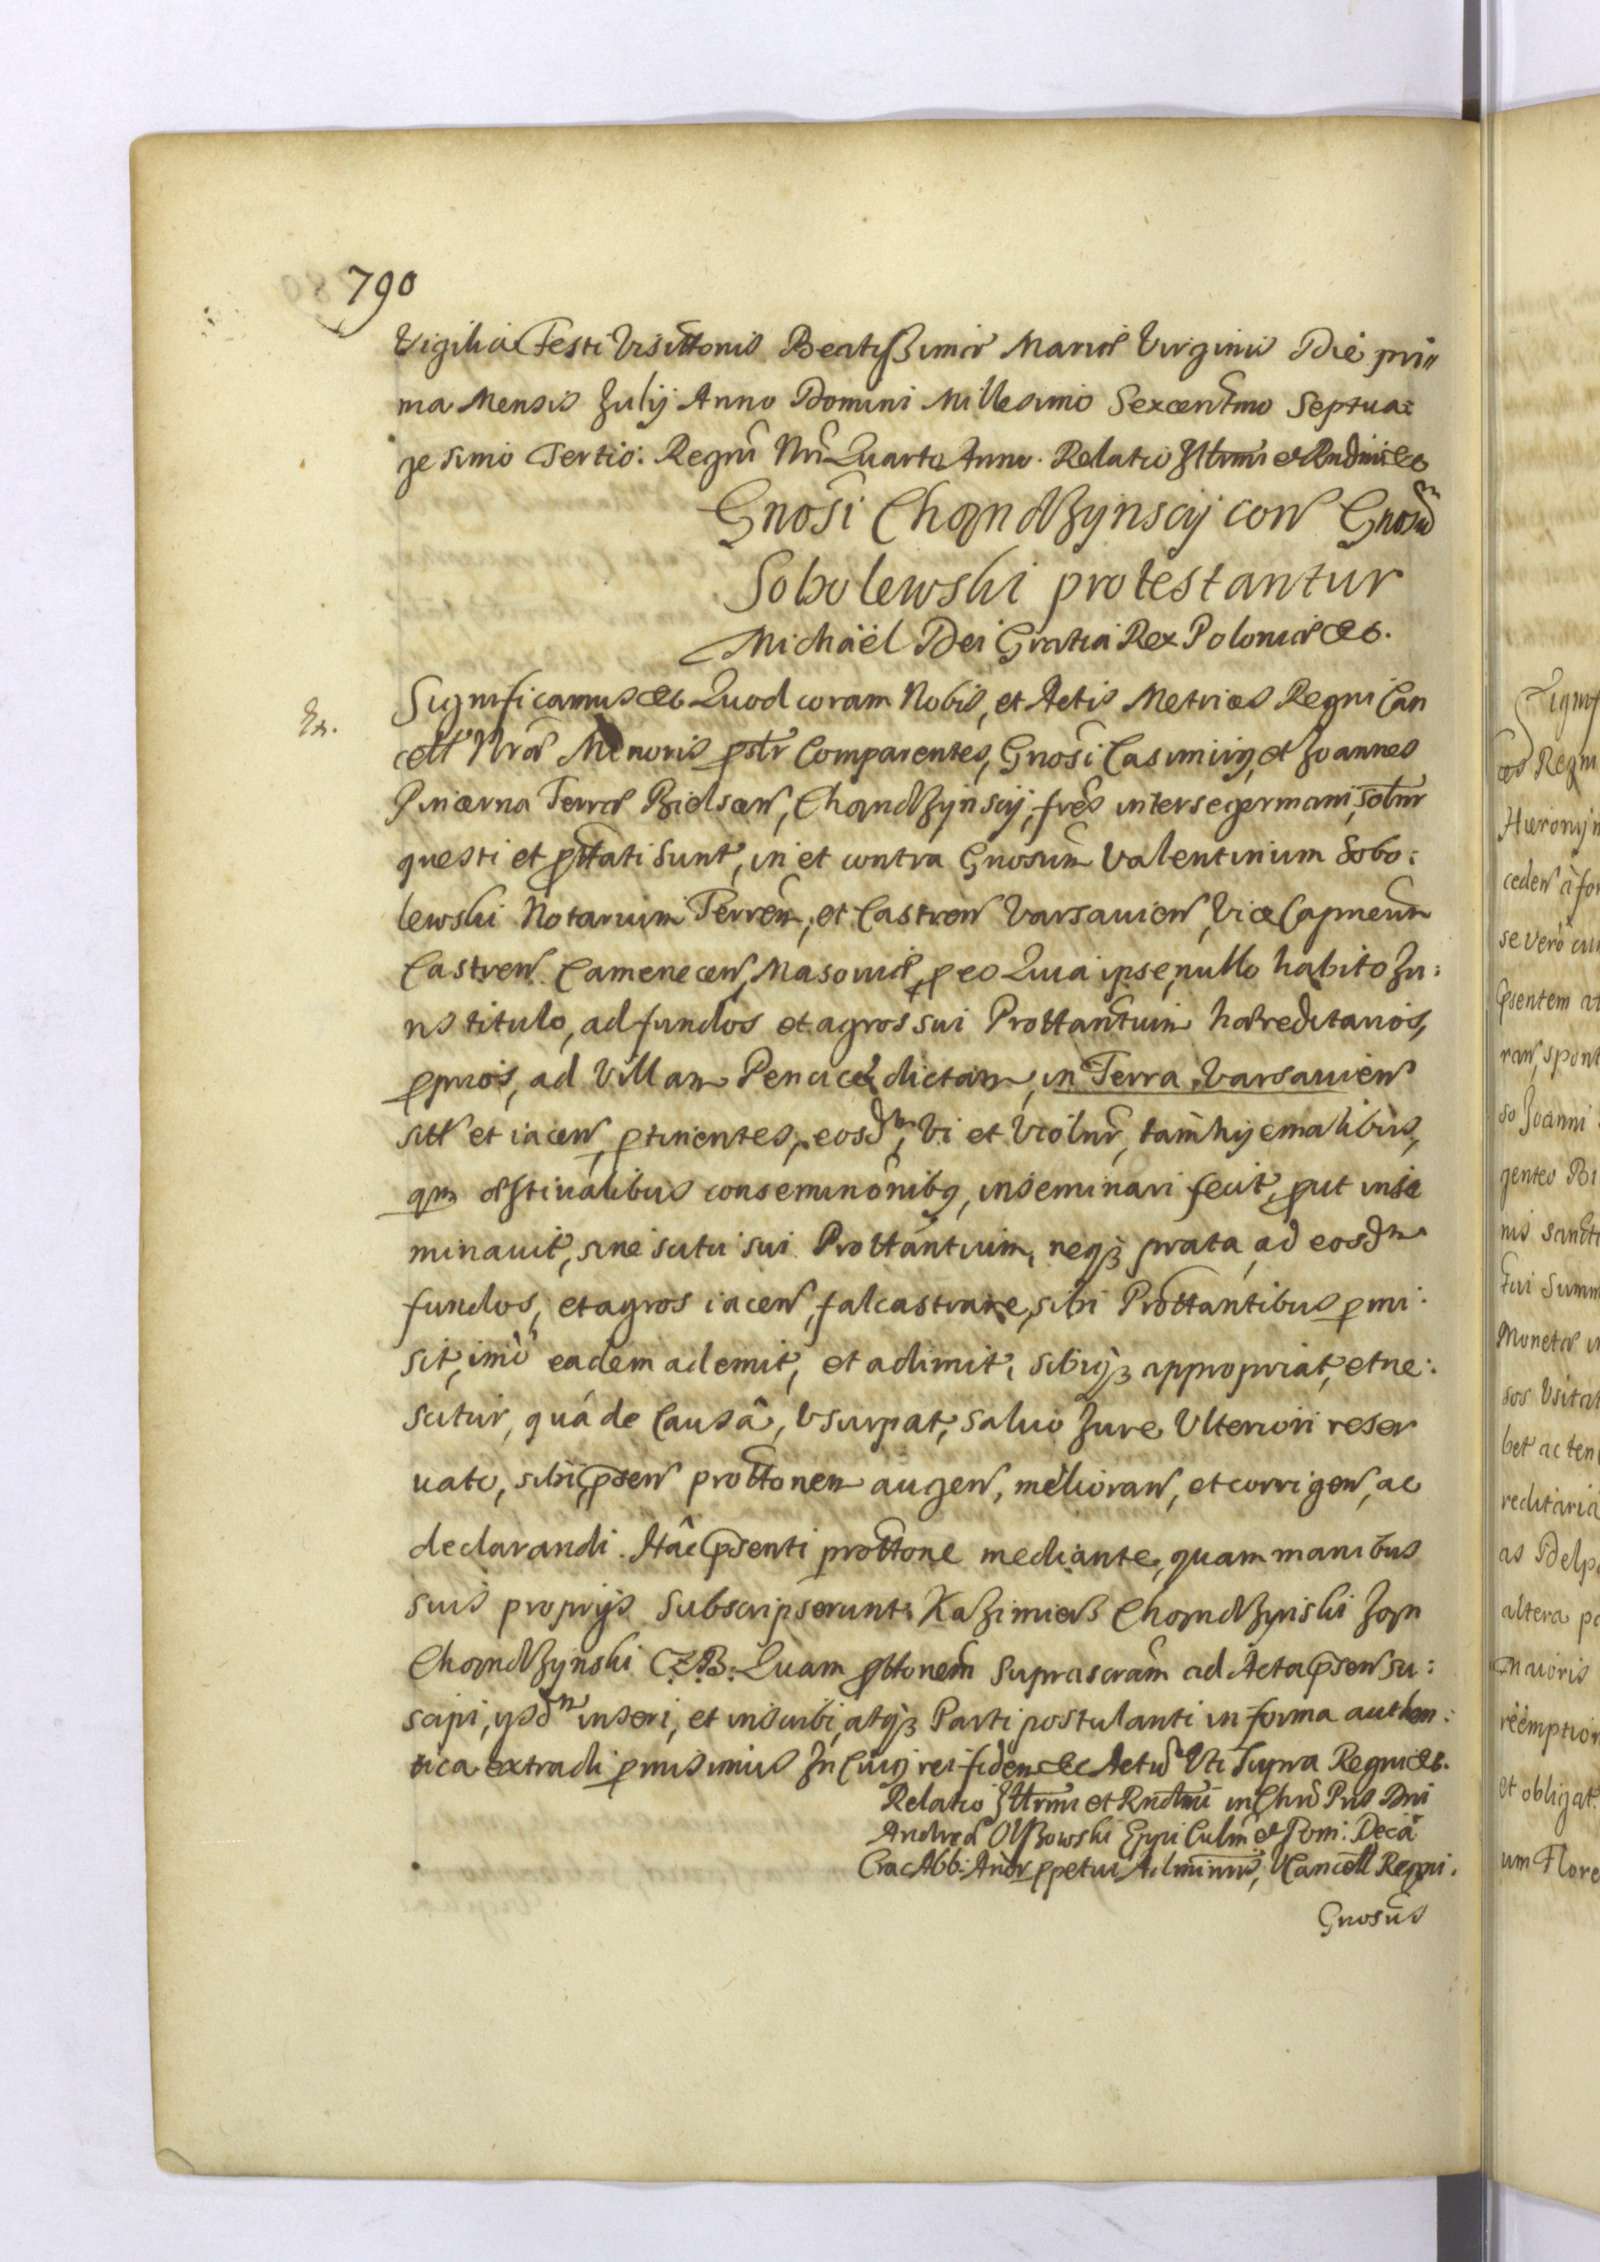 790
Vigilia Festi Visittonis Beatissimæ Mariæ Virginis Die pri„
ma Mensis Julij Anno Domini Millesimo Sexcentmo Septua:
gesimo Tertio. Regni Nri Quarto Anno. Relatio Illrmi et Rndmi etc
Gnosi Chondzynscij con Gnosum
Sobolewski protestantur
Michaël Dei Gratia Rex Poloniæ etc.
Ex.
Significamus etc Quod coram Nobis, et Actis Metrices Regni Can
cell Nræ Minoris pstr Comparentes, Gnosi Casimirg, et Joannes
Pincerna Terræ Bielscen, Chondzynscij, fres inter se germani, soltr
questi et pttati sunt, in et contra Gnosum Valentinum Sobo:
lewski Notarium Terrem, et Castren Varsavien, Vice Capneum
Castren Camenecen, Masoviæ, p eo Quia ipse, nullo habito Ju:
ris titulo, ad fundos et agros sui Prottantium hæreditarios,
pprios, ad Villam Pencice dictam, in Terra Varsavien
sitt et iacen, ptinentes, eosdm, vi et violntr, tam hyemalibus,
qm æstivalibus conseminõnibg, inseminari fecit, put inse
minavit, sine scitu sui Prottantium, neqz prata, ad eosdm
fundos, et agros iacen, falcastrare, sibi Prottantibus pmi:
sit, imò eadem ademit, et adimit, sibiqz appropriat, et ne:
scitur, quá de Causâ, Usurpat, salvo Jure Ulteriori reser
vato, sibi, psen prottonem augen, melioran, et corrigen, ac
declarandi. Hâc psenti prottone mediante, quam manibus
suis proprijs subscripserunt. Kazimierz Chondzynski Jan
Chondzynski C.Z.B. Quam pttonem suprascram ad Acta psen su:
scipi, ijsdm inseri, et inscribi, atqz Parti postulanti in forma authen:
tica extradi pmisimus In Cuig rei fidem etc Actum Uti Supra Regni etc.
Relatio Illrmi et Rndmi in Chro Pris Dni
Andreæ Olszowski Eppi Culm et Pom: Decã
Crac Abb: Andr ppetui Adminris, VCancell Regni.
Gnosus